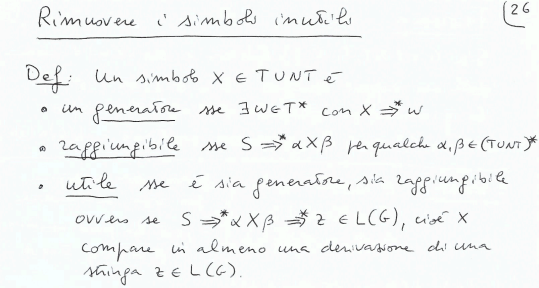 Rimuovere i simboli inutili
26
Def: Un simbolo X ∈ T∪NT è
• un generatore sse ∃w∈T* con X ⇒* w
• raggiungibile sse S ⇒* αXβ per qualche α,β∈(T∪NT)*
• utile sse è sia generatore, sia raggiungibile
ovvero se S ⇒* αXβ ⇒* z ∈ L(G), cioè X
compare in almeno una derivazione di una
stringa z ∈ L(G).